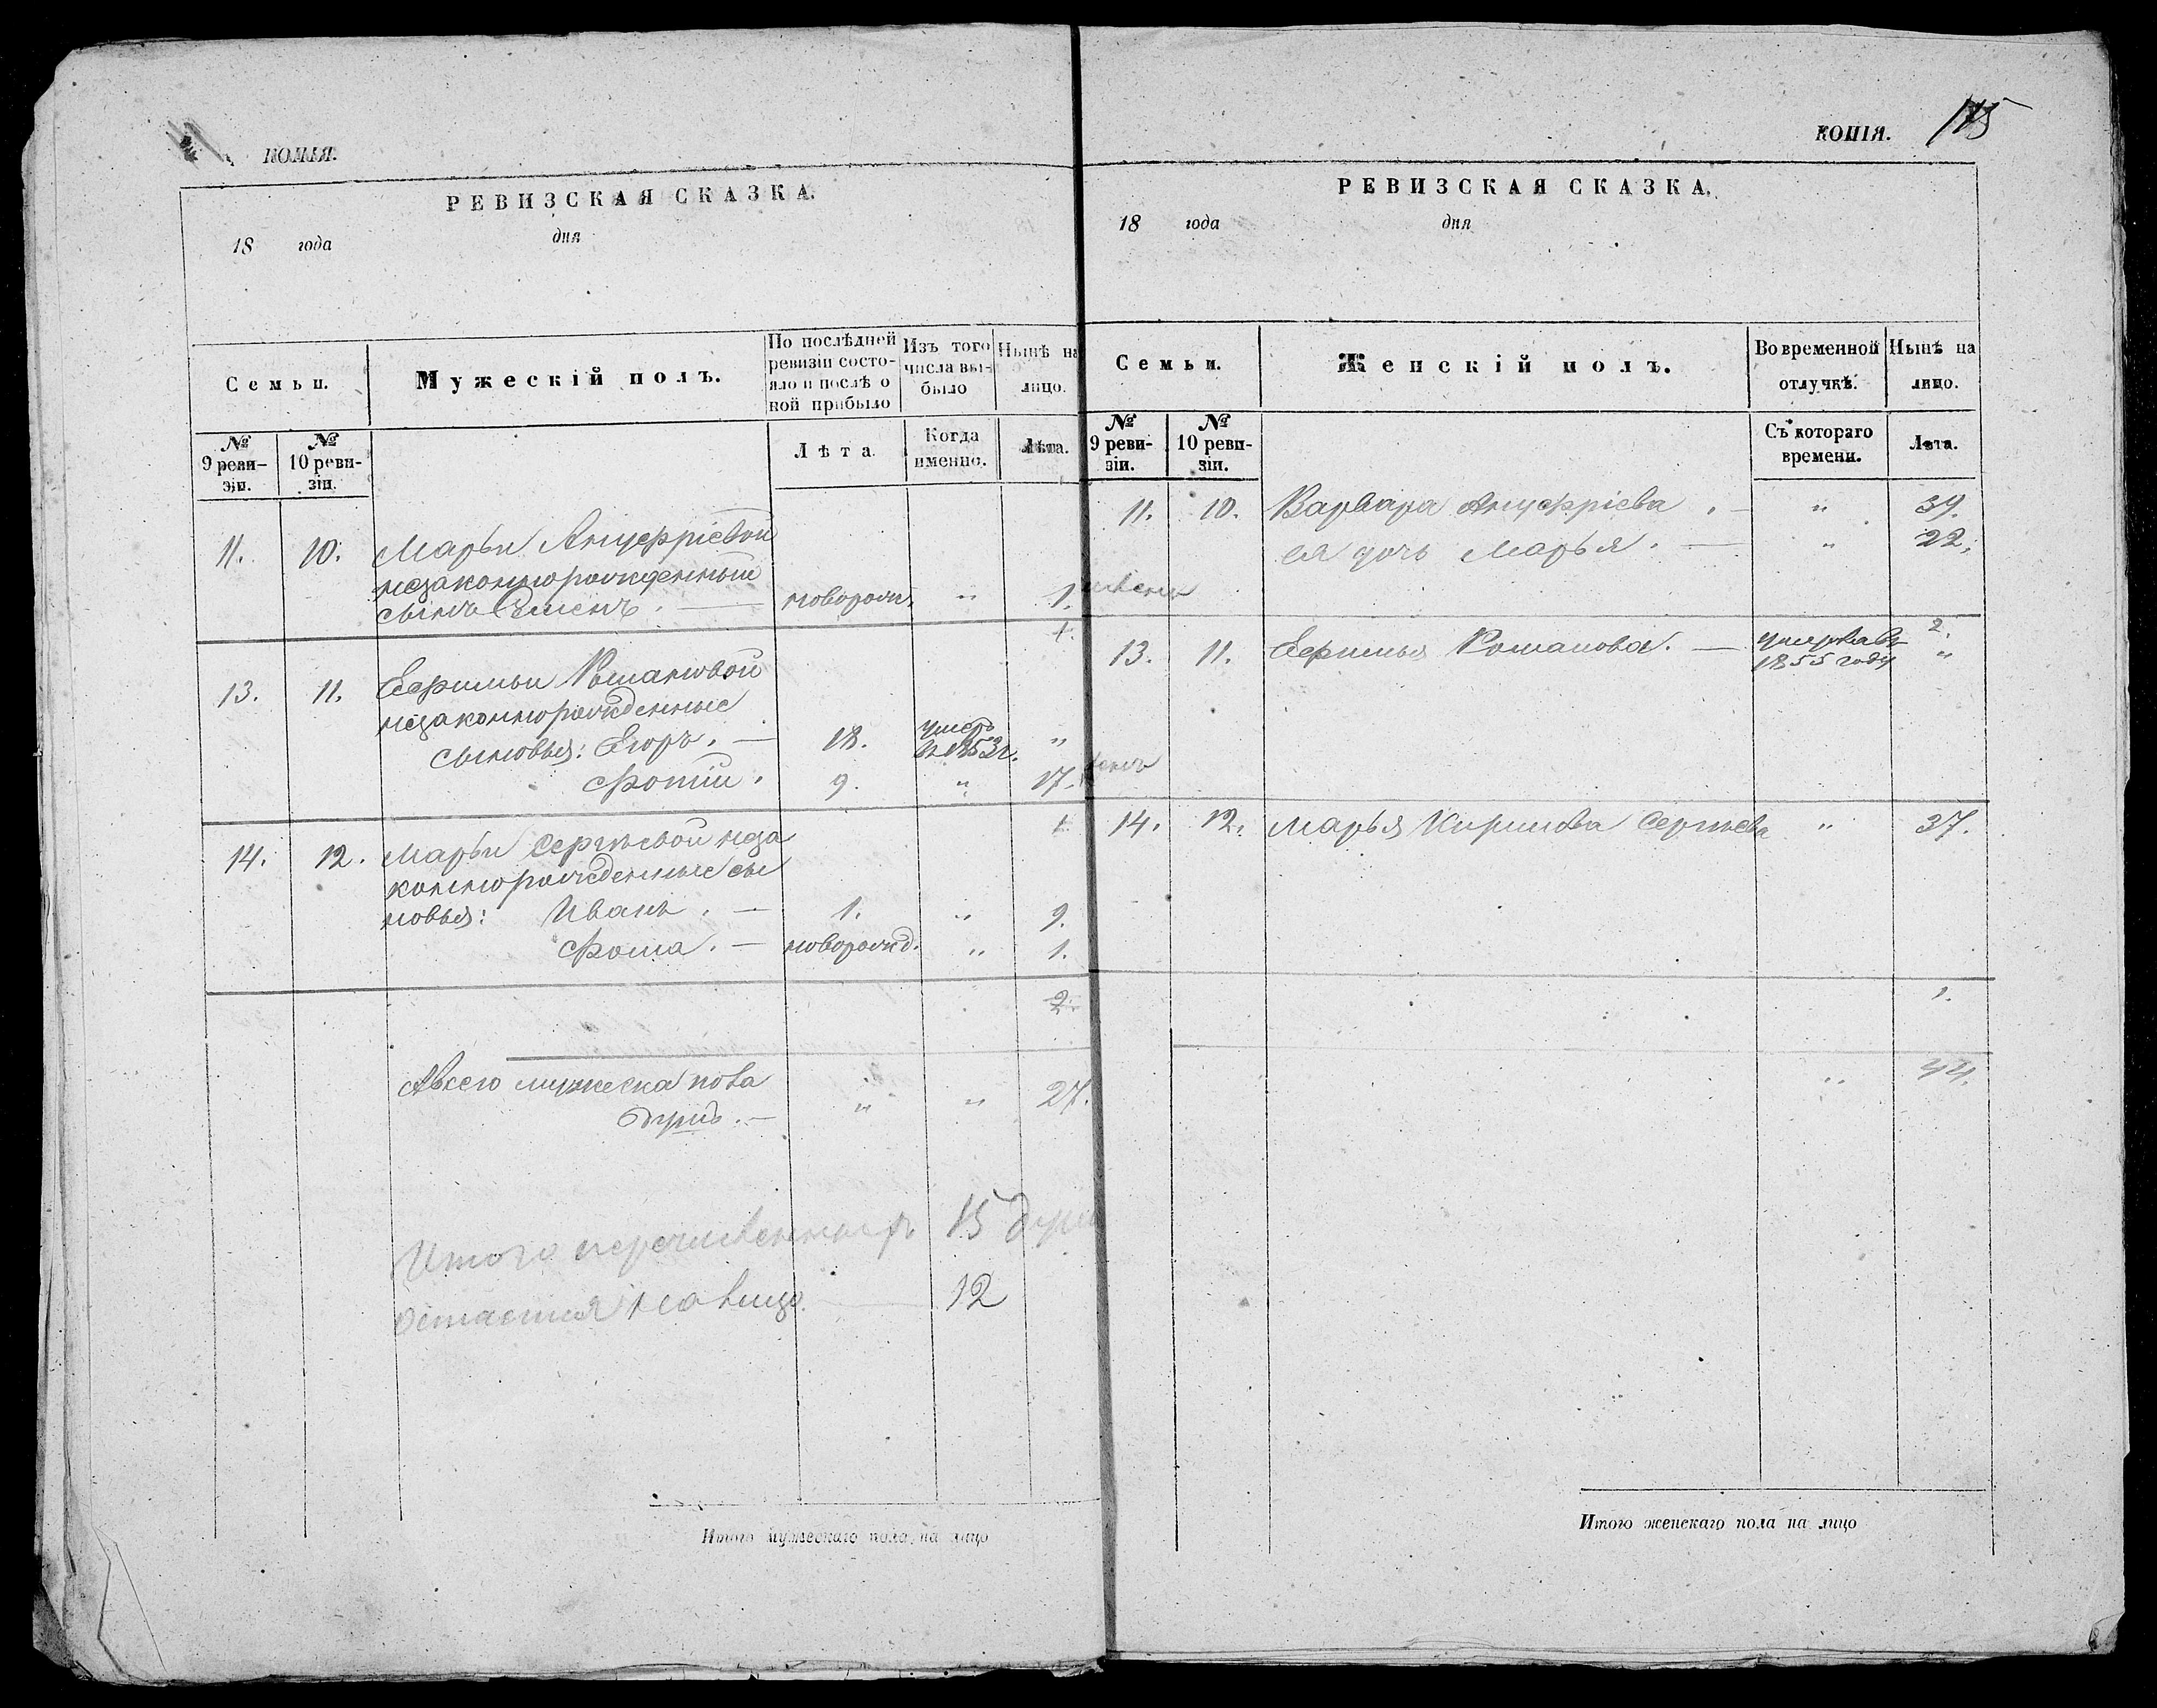 КОПІЯ.
РЕВИЗСКАЯ СКАЗКА.
18 года дня
Семьи. Мужескій полъ. По послѣдней ревизіи состояло и послѣ оной прибыло Изъ того числа выбыло Нынѣ на лицо.
№ 9 ревизіи. № 10 ревизіи. Лѣта Когда именно. Лѣта.
11. 10. Марьи Ануфріевой
незаконнорожденный
сынъ Семенъ. — новорож. " 1.
1.
13. 11. Ефимьи Романовой
незаконнорожденные
сыновья: Егоръ. — 18. умеръ въ 1853 г. "
Фотій. 9. " 17.
1
14. 12. Марьи Сергѣевой неза
коннорожденные сы
новья: Иванъ. — 1. " 9.
Фома. — новорожд. " 1.
2.
А всего мужеска пола
душъ. — " " 27.
Итого перечисленныхъ 15 душ
остается на лицо. 12
Итого мужескаго пола на лицо
КОПІЯ. 175
РЕВИЗСКАЯ СКАЗКА.
18 года дня
Семьи. Женскій полъ. Во временной отлучкѣ. Нынѣ на лицо.
№ 9 ревизіи. № 10 ревизіи. Съ котораго времени. Лѣта.
11. 10. Варвара Ануфріева. — " 39.
ея дочь Марья. — " 22.
2.
13. 11. Ефимья Романова. — умерла въ 1855 году "
14. 12. Марья Кирилова Сергѣева " 37.
1.
" 44.
Итого женскаго пола на лицо